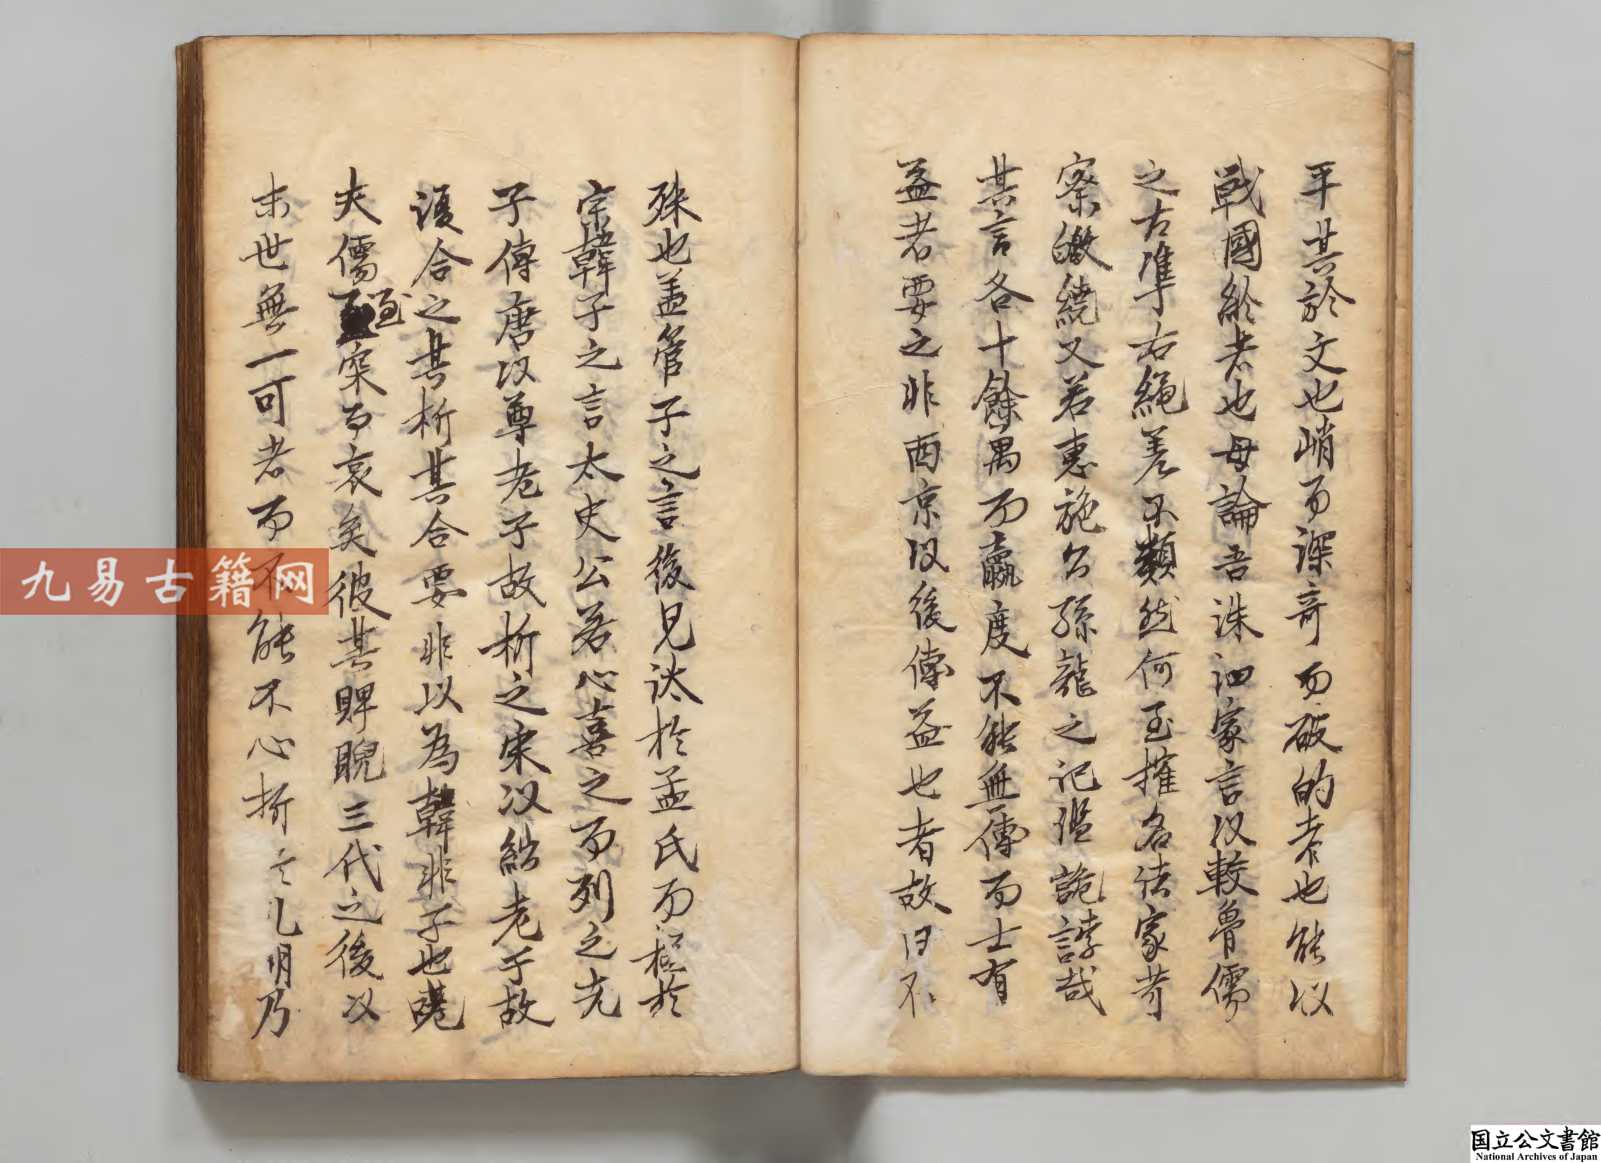 平其於文也峭而深奇而破的者也能以
戰國終者也毋論吾洙泗家言以較魯儒
之右準右繩差不類然何至搉名法家苛
察繳繞又若惠施公孫龍之記謡詭誖哉
其言各十餘萬而贏度不能無傳而士有
益者要之非西京以後傳益也者故曰不
殊也蓋管子之言後見法於孟氏而極於
宗韓子之言太史公若心喜之而列之老
子傳唐以尊老子故析之宋以絀老子故
復合之其析其合要非以為韓非子也嗟
夫儒至宋而衰矣彼其睥睨三代之後以
末世無一可者而不能不心折乃
九易古籍网
国立公文書館
National Archives of Japan